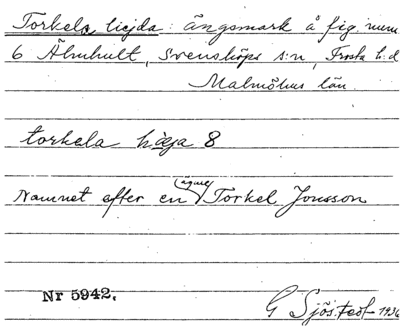 Torkela hejda: ängsmark å fig. num
6 Älmhult, Svensköps s:n, Frosta h:d
Malmöhus län.
torkela hæja 8
Namnet efter en ägare Torkel Jonsson
Nr 5942.
G Sjöstedt 1936